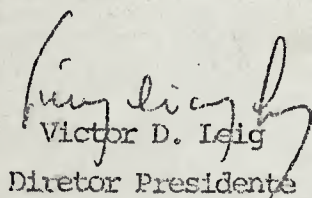 Victor D. Leig
Diretor Presidente